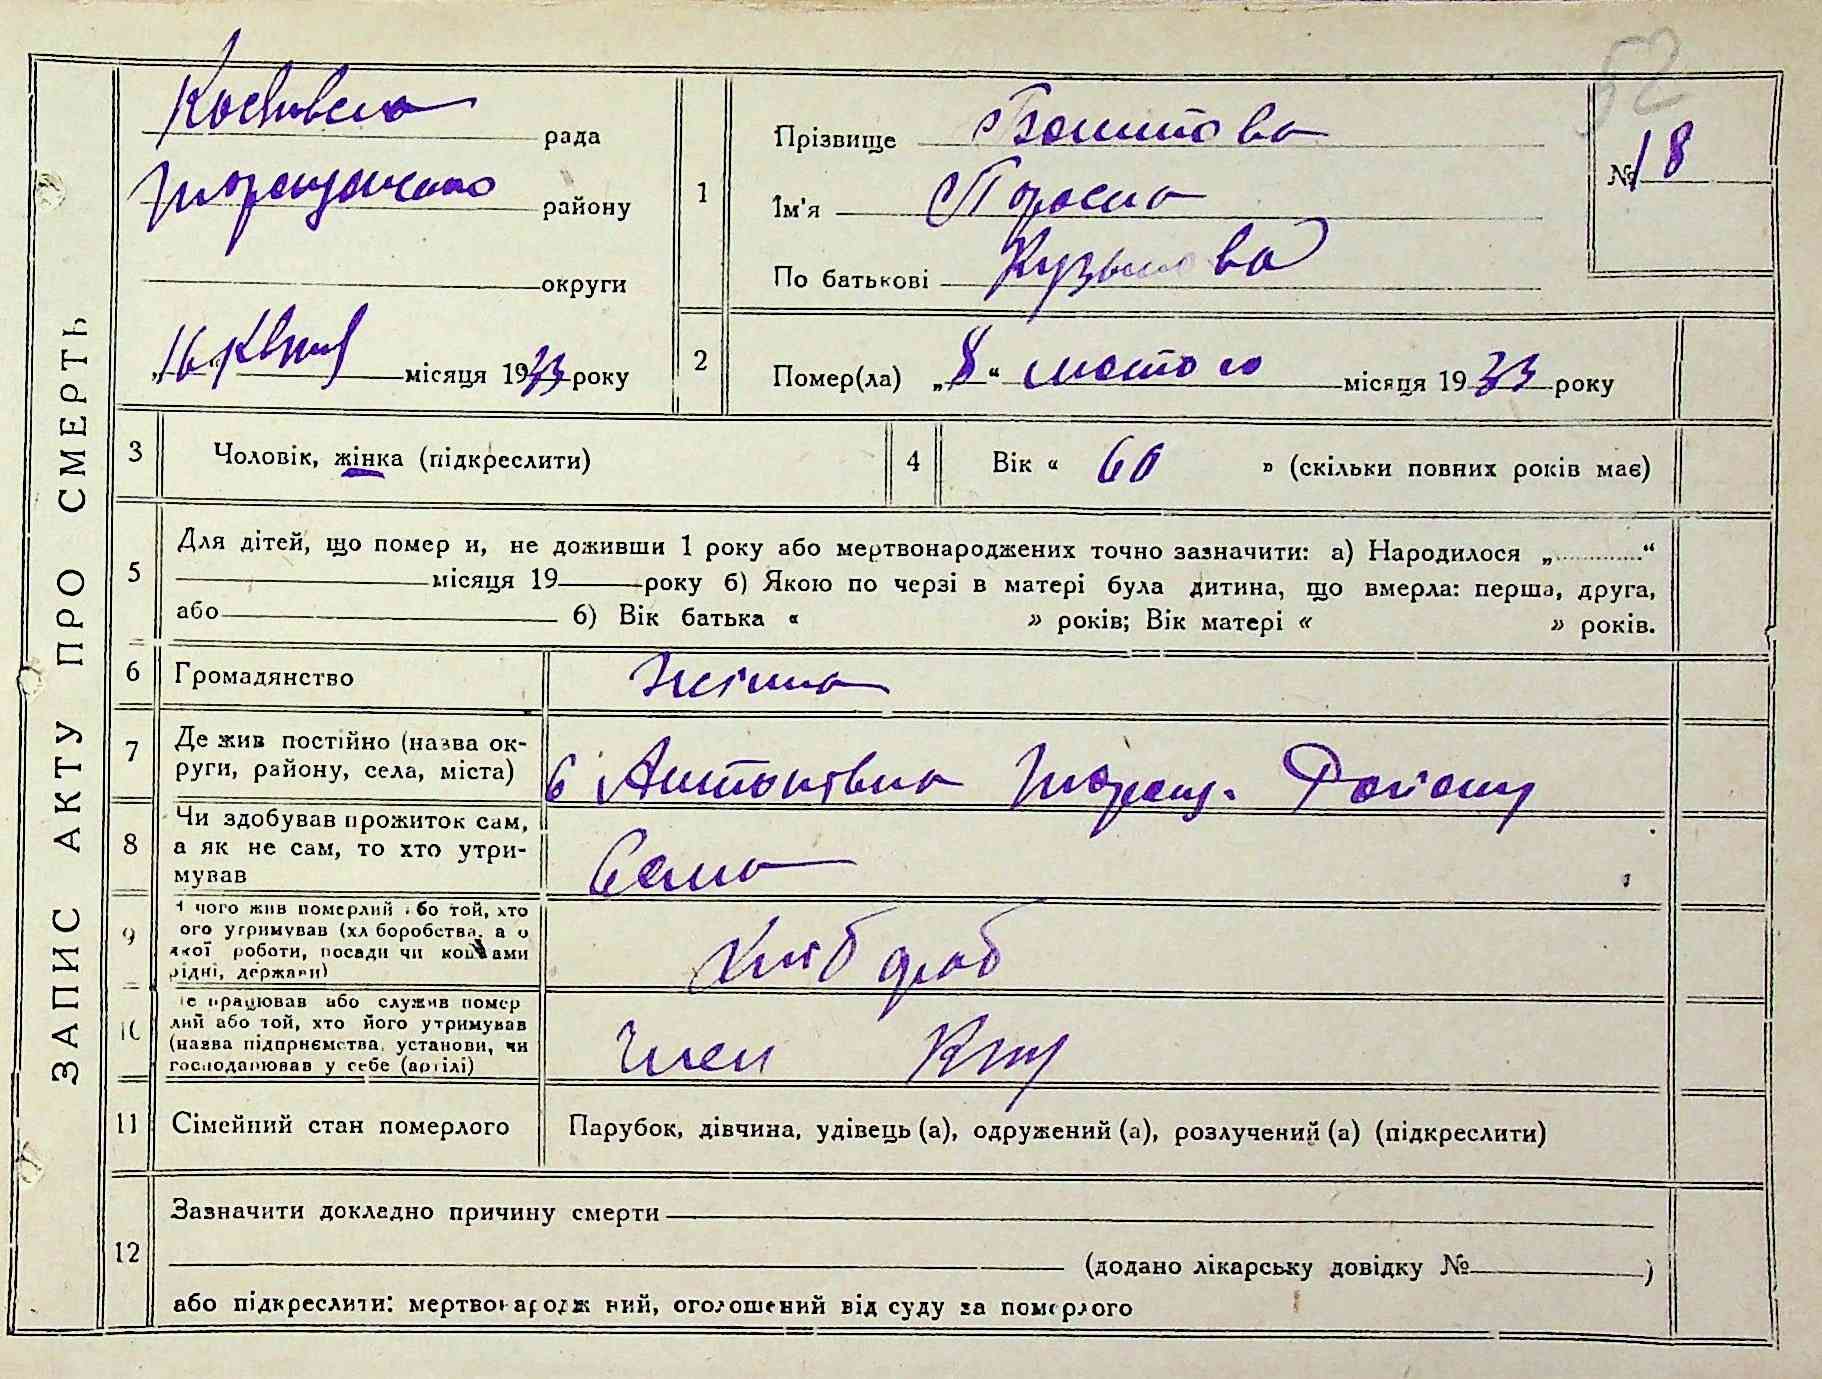 ЗАПИС АКТУ ПРО СМЕРТЬ
52
рада
району
округи
"16" Квітня місяця 1933 року
1
Прізвище
Ім'я
По батькові Кузьмова
№ 18
2
Помер(ла) „8“ лютого місяця 1933 року
3
Чоловік, жінка (підкреслити)
4
Вік « 60 » (скільки повних років має)
5
Для дітей, що помер и, не доживши 1 року або мертвонароджених точно зазначити: а) Народилося „............“
місяця 19 року б) Якою по черзі в матері була дитина, що вмерла: перша, друга,
або б) Вік батька « » років; Вік матері « » років.
6
Громадянство
7
Де жив постійно (назва ок-
руги, району, села, міста)
с Антонівка Таращ. Району
8
Чи здобував прожиток сам,
а як не сам, то хто утри-
мував
Сама
9
чого жив померлий бо той, хто
ого утримував (хл боробства, а о
якої роботи, посади чи коштами
рідні, держави)
Хліб роб
10
е працював або служив помер
лий або той, хто його утримував
(назва підприємства, установи, чи
господарював у себе (артілі)
Член
11
Сімейний стан померлого
Парубок, дівчина, удівець (а), одружений (а), розлучений (а) (підкреслити)
12
Зазначити докладно причину смерти
(додано лікарську довідку № )
або підкреслити: мертвонародж ний, оголошений від суду за померлого